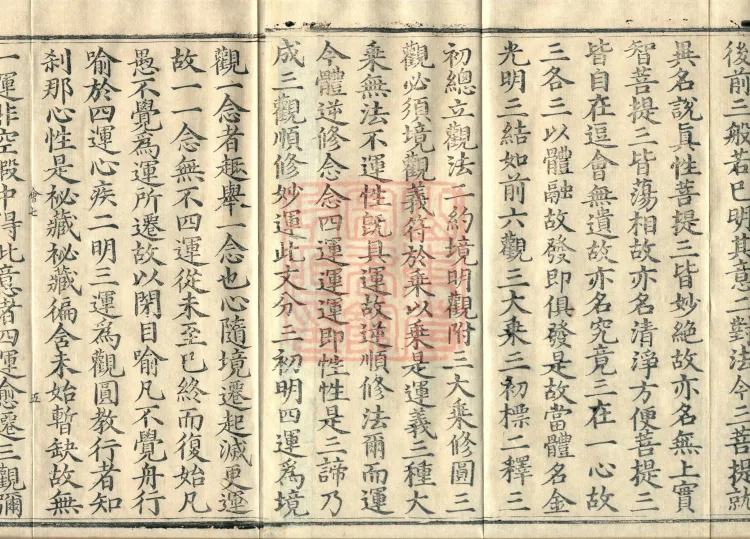 後前二般若已明其意二對法令三菩提就
異名說眞性菩提三皆妙絶故亦名無上實
智菩提三皆蕩相故亦名清淨方便菩提三
皆自在逗會無遺故亦名究竟三在一心故
三各三以體融故發即俱發是故當體名金
光明三結如前六觀三大乘三初標二釋三
初總立觀法二約境明觀附三大乘修圓三
觀必須境觀義符於乘以乘是運義三種大
乘無法不運性旣具運故逆順修法爾而運
今體逆修念念四運運運即性性是三諦乃
成三觀順修妙運此文分三初明四運爲境
觀一念者趣舉一念也心隨境遷起滅更運
故一一念無不四運從未至已終而復始凡
愚不覺爲運所遷故以閉目喻凡不覺舟行
喻於四運心疾二明三運爲觀圓教行者知
刹那心性是祕藏祕藏徧舍未始暫缺故無
一運非空假中得此意者四運愈遷三觀彌
會七
五